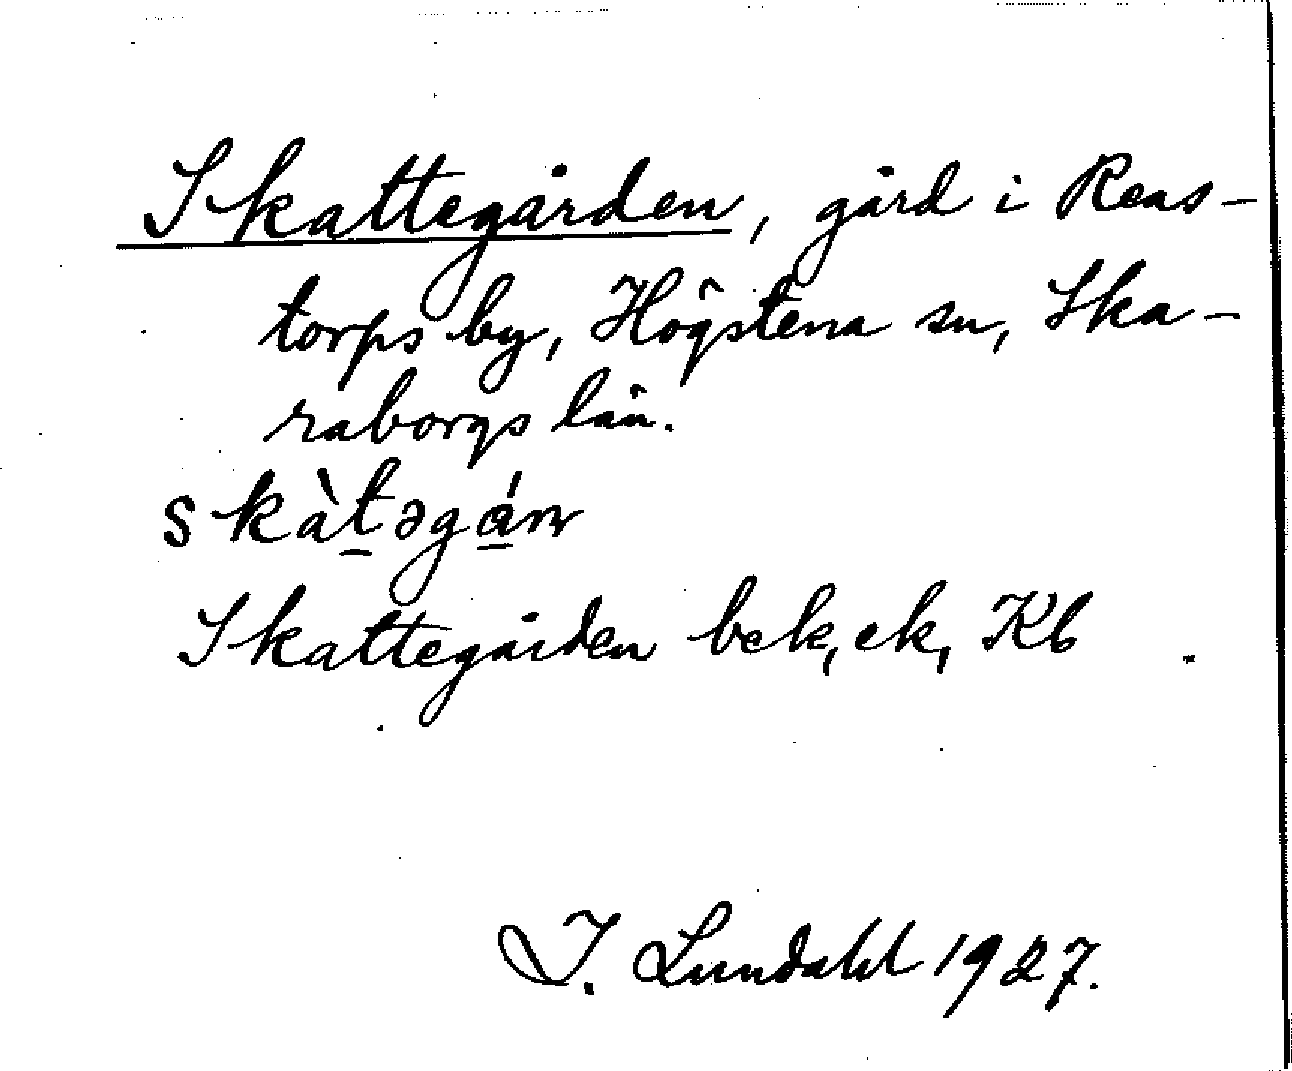 Skattegården, gård i Reas-
torps by, Högstena sn, Ska-
raborgs län.
skàt̲əgá̲nr
Skattegården bek, ek, Kb
I. Lundahl 1927.